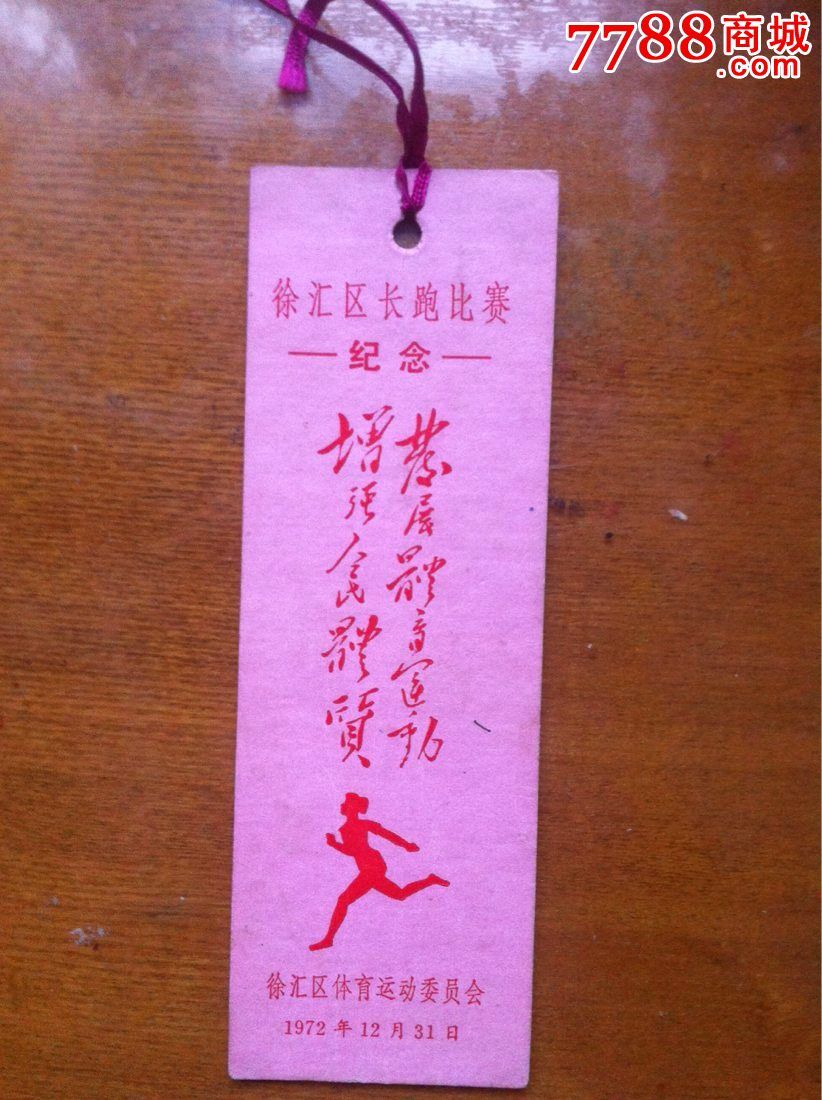 7788商城
.com
徐汇区长跑比赛
—纪念—
發展體育運動
增强人民體質
徐汇区体育运动委员会
1972年12月31日